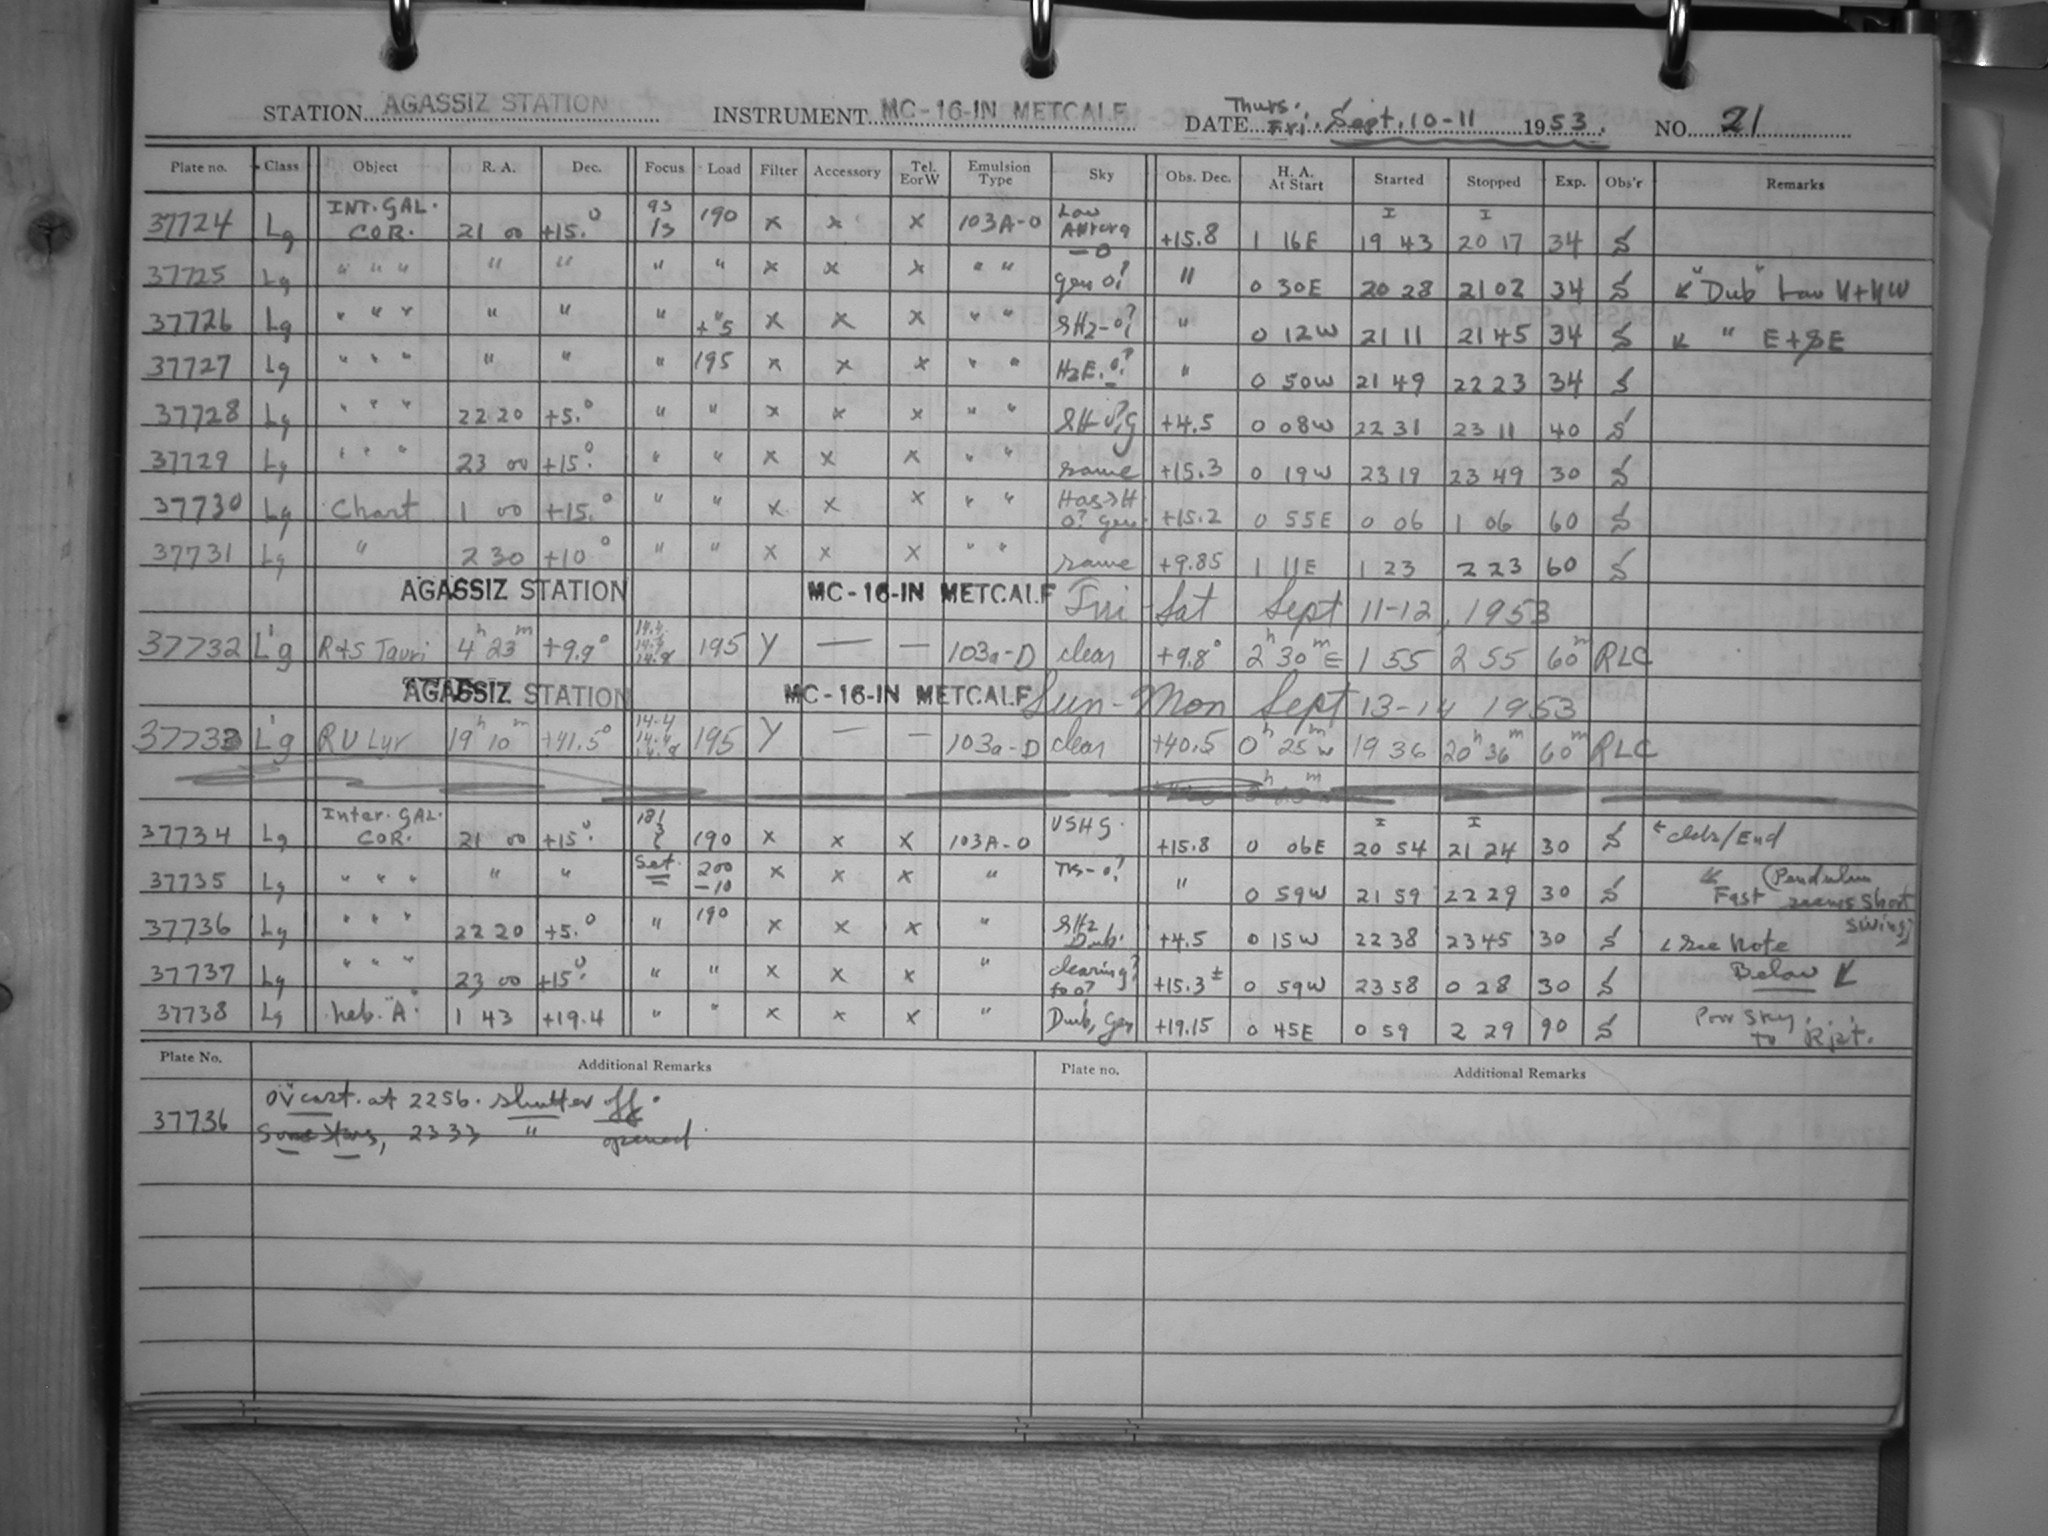 STATION AGASSIZ STATION INSTRUMENT MC-16-IN METCALF DATE Thurs. Fri. Sept. 10-11 1953. NO. 21
Plate no. Class Object R. A. Dec. Focus Load Filter Accessory Tel. E or W Emulsion Type Sky Obs. Dec. H. A. At Start Started Stopped Exp. Obs'r Remarks
37724 Lg INT. GAL. COR. 21 00 +15.° 93 13 190 x x x 103A-O Low Aurora -0 +15.8 1 16E 19 43 20 17 34 S
37725 Lg " " " " " " " x x x " " gen 0? " 0 30E 20 28 21 02 34 S "Dub" Low
37726 Lg " " " " " " " +5 x x x " " SH2-0? " 0 12W 21 11 21 45 34 S " E+SE
37727 Lg " " " " " " 195 x x x " " " 0 50W 21 49 22 23 34 S
37728 Lg " " " 22 20 +5.° " " x x x " " +4.5 0 08W 22 31 23 11 40 S
37729 Lg " " " 23 00 +15.° " " x x x " " same +15.3 0 19W 23 19 23 49 30 S
37730 Lg Chart 1 00 +15.° " " x x x " " 0? gen. +15.2 0 55E 0 06 1 06 60 S
37731 Lg " 2 30 +10° " " x x x " " same +9.85 1 11E 1 23 2 23 60 S
AGASSIZ STATION MC-16-IN METCALF Fri-Sat Sept 11-12, 1953
37732 L'g R+S Tauri 4h 23m +9.9° 14.4 14.4 14.8 195 Y — — 103a-D clear +9.8° 2h 30m E 1 55 2 55 60m RLC
AGASSIZ STATION MC-16-IN METCALF Sun-Mon Sept 13-14 1953
37733 L'g RV Lyr 19h 10m +41.5° 14.4 14.4 14.8 195 Y — — 103a-D clear +40.5 0h 25m W 19 36 20h 36m 60m RLC
37734 Lg Inter. GAL. COR. 21 00 +15°. 181 190 x x x 103A-O VSHG. +15.8 0 06E 20 54 21 24 30 S clds/End
37735 Lg " " " " " Set. 200 -10 x x x " " 0 59W 21 59 22 29 30 S (Pendulum Fast means Short Swing)
37736 Lg " " " 22 20 +5.° " 190 x x x " SH2 Dub. +4.5 0 15W 22 38 23 45 30 S See Note
37737 Lg " " " 23 00 +15°. " " x x x " clearing? to 0? +15.3± 0 59W 23 58 0 28 30 S Below
37738 Lg Neb. "A" 1 43 +19.4 " " x x x " Dub, Gen +19.15 0 45E 0 59 2 29 90 S Poor Sky. To Rjct.
Plate No. Additional Remarks Plate no. Additional Remarks
37736 Ov'cast. at 2256. Shutter off.
Some stars, 2333 " opened.